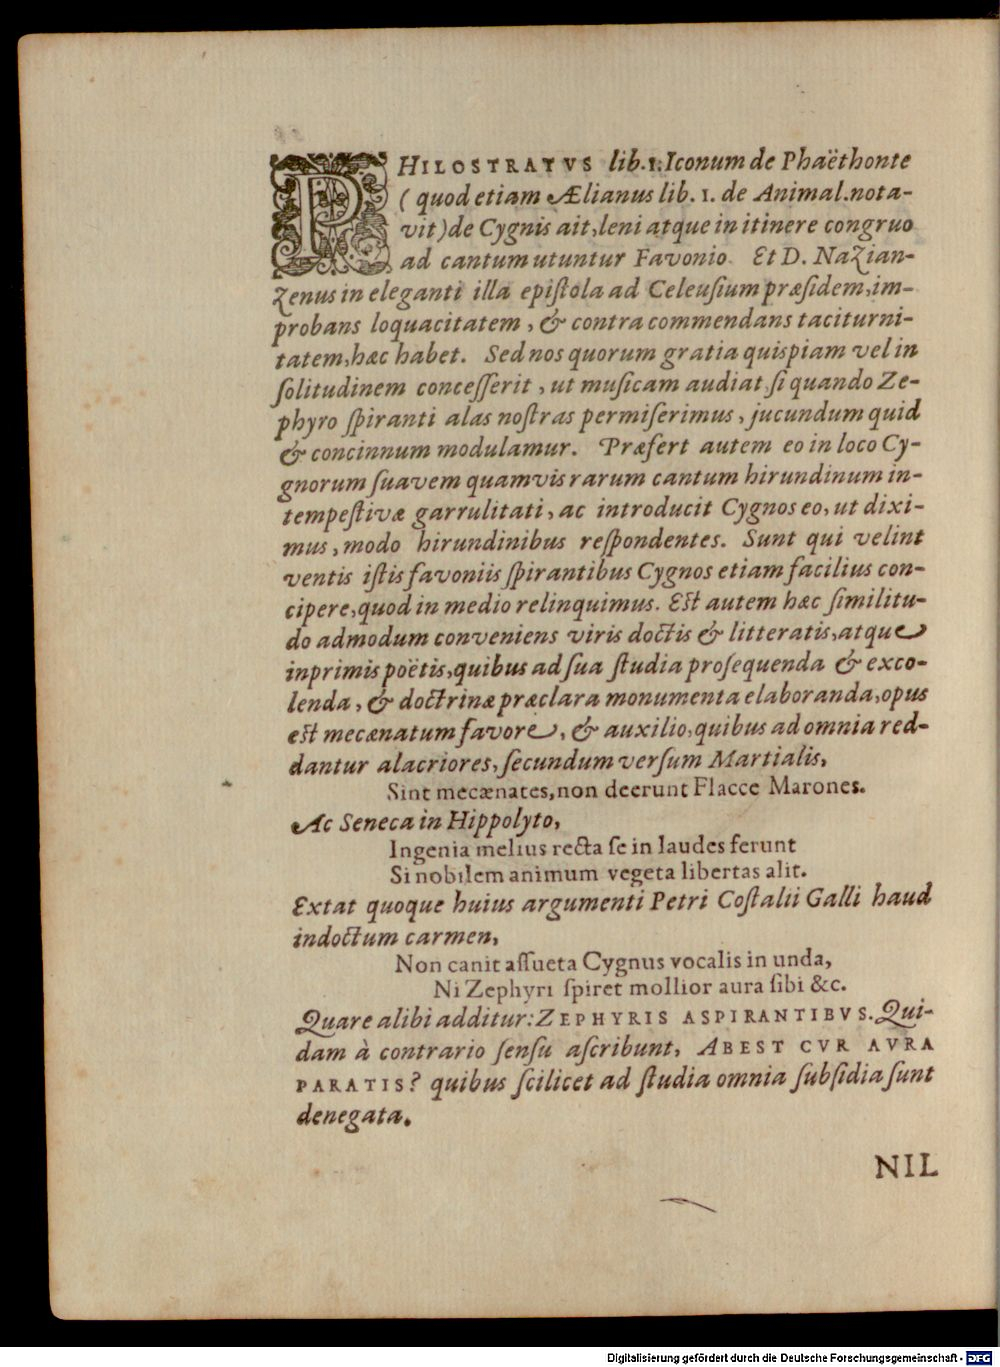 PHILOSTRATVS lib. 1. Iconum de Phaëthonte
( quod etiam Ælianus lib. 1. de Animal. nota-
vit) de Cygnis ait, leni atque in itinere congruo
ad cantum utuntur Favonio. Et D. Nazian-
zenus in eleganti illa epiſtola ad Celeuſium præſidem, im-
probans loquacitatem, & contra commendans taciturni-
tatem, hæc habet. Sed nos quorum gratia quispiam vel in
ſolitudinem conceſſerit, ut muſicam audiat, ſi quando Ze-
phyro ſpiranti alas noſtras permiſerimus, jucundum quid
& concinnum modulamur. Præfert autem eo in loco Cy-
gnorum ſuavem quamvis rarum cantum hirundinum in-
tempeſtivæ garrulitati, ac introducit Cygnos eo, ut dixi-
mus, modo hirundinibus reſpondentes. Sunt qui velint
ventis iſtis favoniis ſpirantibus Cygnos etiam facilius con-
cipere, quod in medio relinquimus. Eſt autem hæc ſimilitu-
do admodum conveniens viris doctis & litteratis, atque
inprimis poëtis, quibus ad ſua ſtudia proſequenda & exco-
lenda, & doctrinæ præclara monumenta elaboranda, opus
eſt mecænatum favore, & auxilio, quibus ad omnia red-
dantur alacriores, ſecundum verſum Martialis,
Sint mecænates, non deerunt Flacce Marones.
Ac Seneca in Hippolyto,
Ingenia melius recta ſe in laudes ferunt
Si nobilem animum vegeta libertas alit.
Extat quoque huius argumenti Petri Coſtalii Galli haud
indoctum carmen,
Non canit aſſueta Cygnus vocalis in unda,
Ni Zephyri ſpiret mollior aura ſibi &c.
Quare alibi additur: ZEPHYRIS ASPIRANTIBVS. Qui-
dam à contrario ſenſu aſcribunt, ABEST CVR AVRA
PARATIS? quibus ſcilicet ad ſtudia omnia ſubſidia ſunt
denegata.
NIL
Digitalisierung gefördert durch die Deutsche Forschungsgemeinschaft - DFG